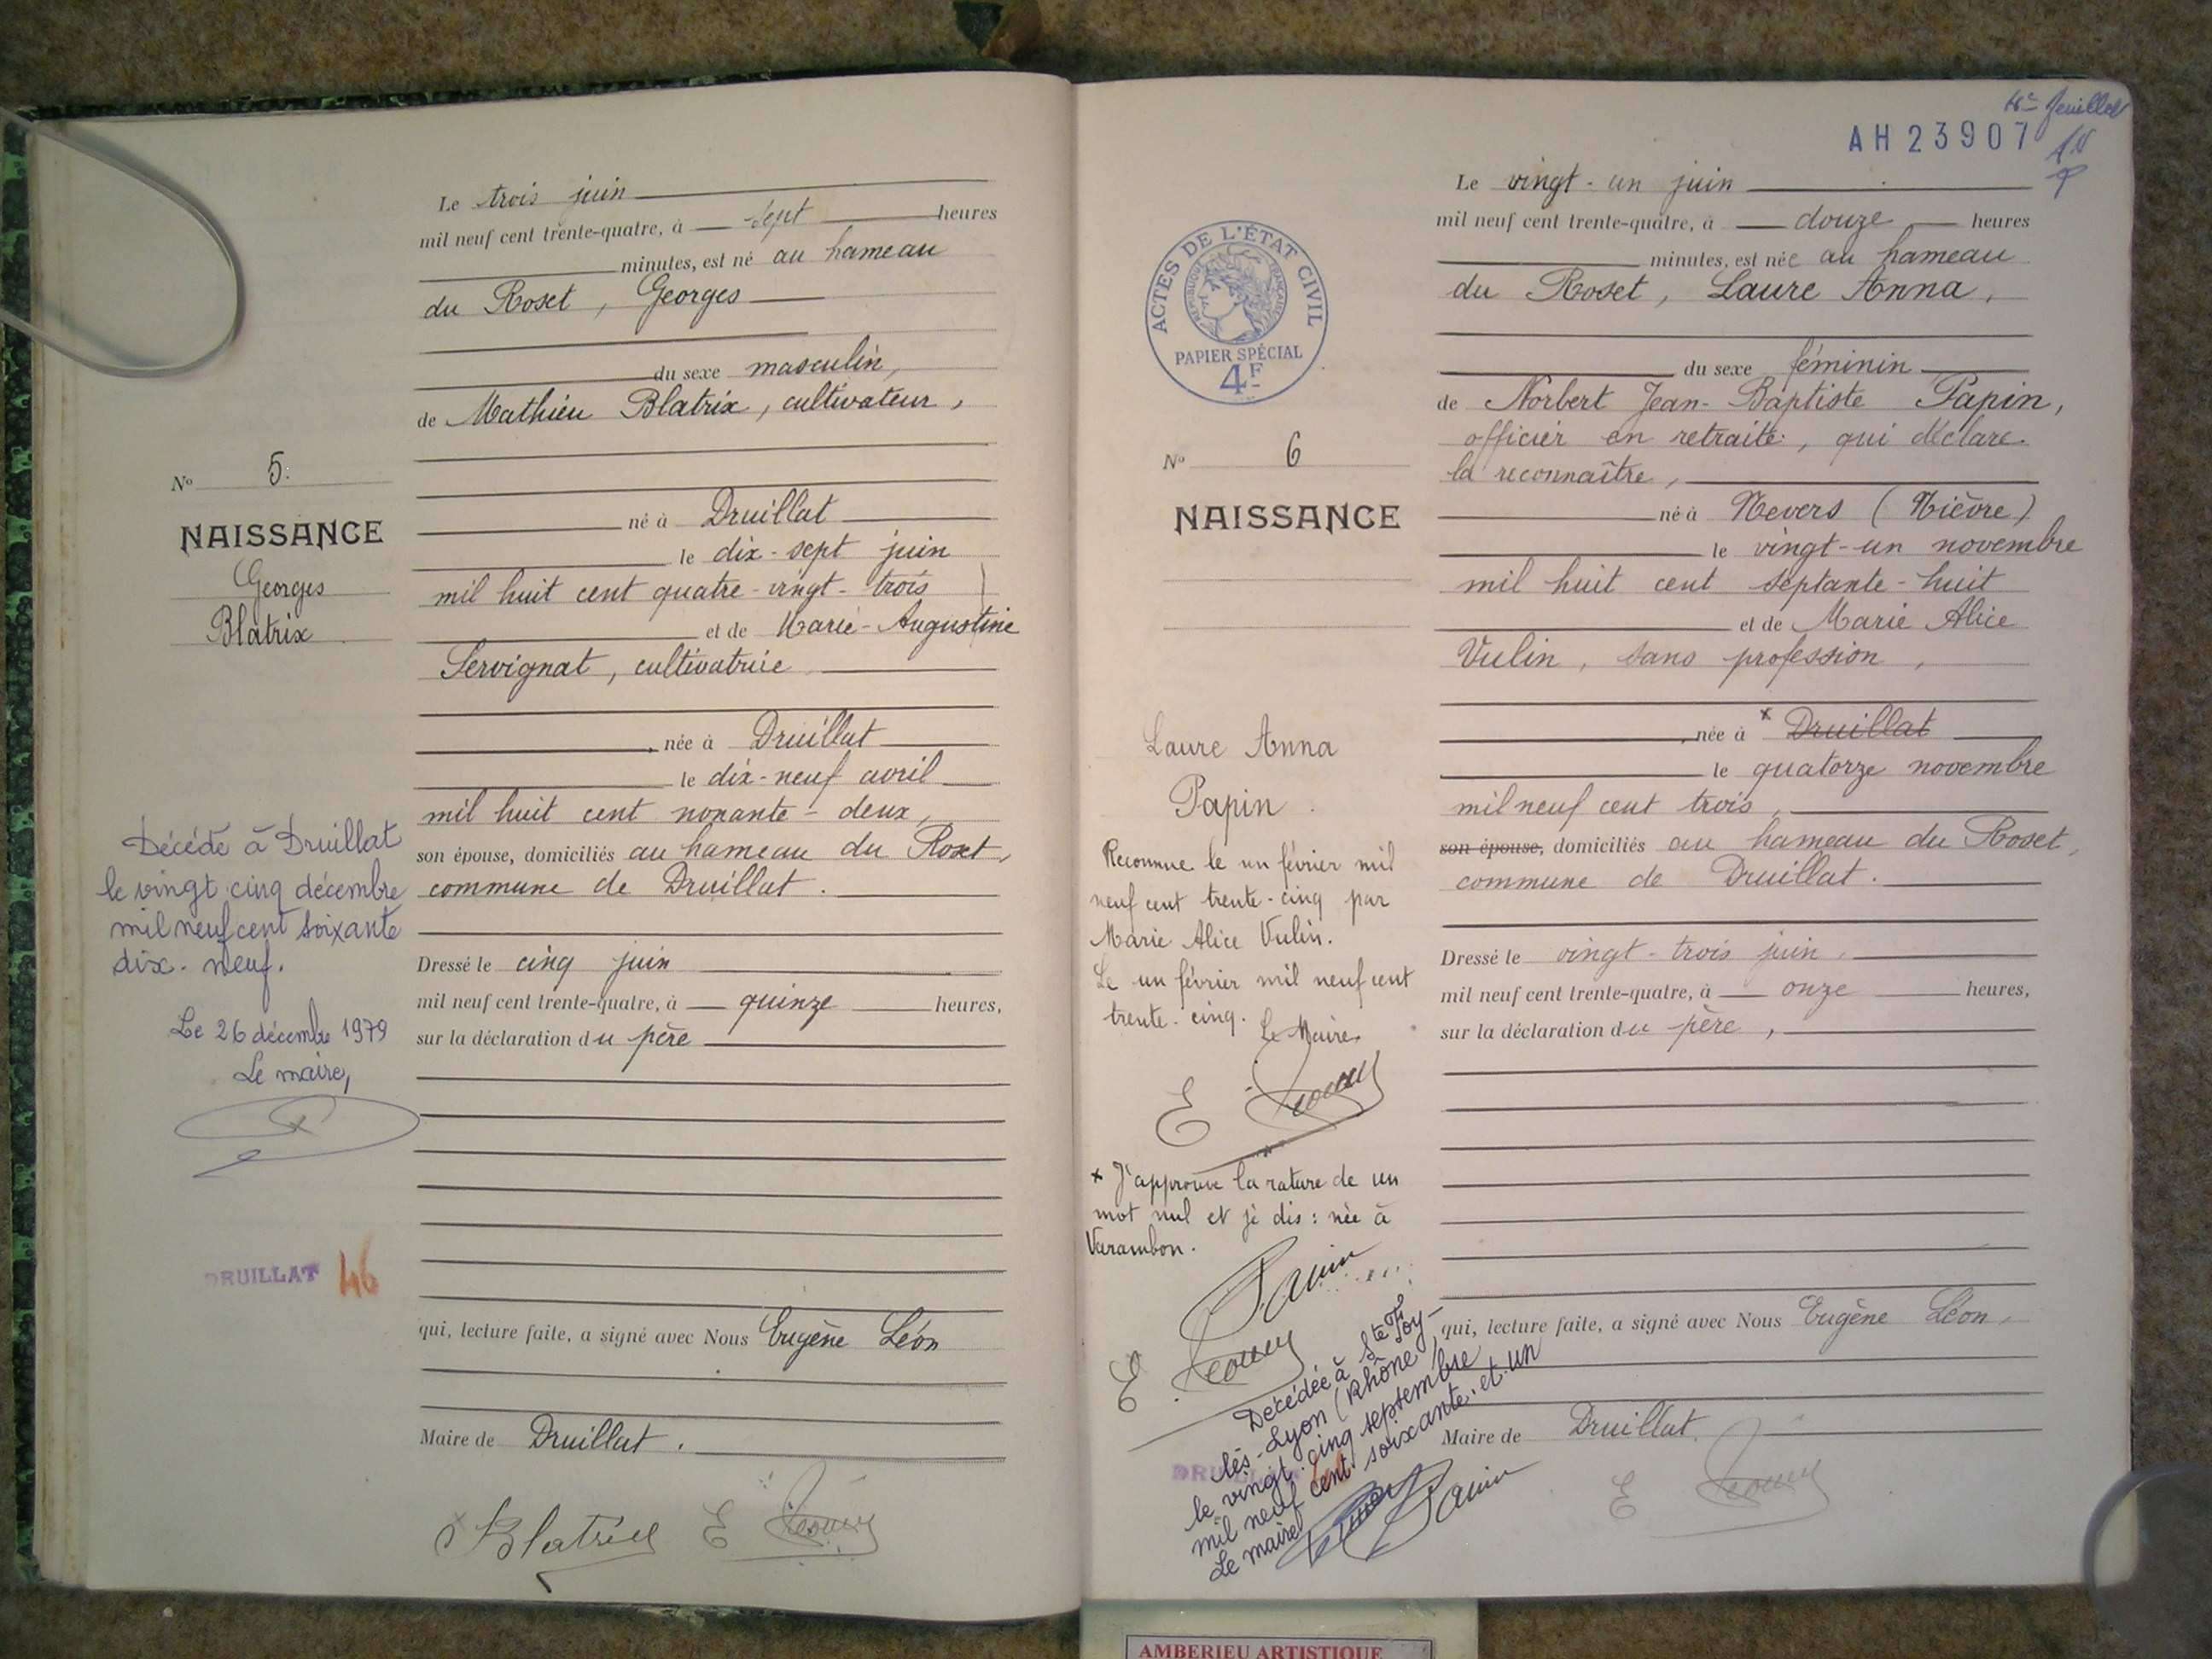 Le trois juin
mil neuf cent trente-quatre, à sept heures
minutes, est né au hameau
du Roset, Georges
du sexe masculin,
de Mathieu Blatrix, cultivateur,
né à Druillat
le dix-sept juin
mil huit cent quatre-vingt-trois
et de Marie-Augustine
Servignat, cultivatrice
née à Druillat
le dix-neuf avril
mil huit cent nonante-deux,
son épouse, domiciliés au hameau du Roset,
commune de Druillat.
Dressé le cinq juin
mil neuf cent trente-quatre, à quinze heures,
sur la déclaration du père
qui, lecture faite, a signé avec Nous Eugène Léon
Maire de Druillat.
Blatrix E
No 5.
NAISSANCE
Georges
Blatrix
Décédé à Druillat
le vingt cinq décembre
mil neuf cent soixante
dix-neuf.
Le 26 décembre 1979
Le maire,
DRUILLAT 46
feuillet
AH 23907
Le vingt-un juin
mil neuf cent trente-quatre, à douze heures
minutes, est née au hameau
du Roset, Laure Anna,
du sexe féminin
de Norbert Jean-Baptiste Papin,
officier en retraite, qui déclare
la reconnaître,
né à Nevers (Nièvre)
le vingt-un novembre
mil huit cent septante-huit
et de Marie Alice
Vulin, sans profession,
née à x Druillat
le quatorze novembre
mil neuf cent trois,
son épouse, domiciliés au hameau du Roset,
commune de Druillat.
Dressé le vingt-trois juin
mil neuf cent trente-quatre, à onze heures,
sur la déclaration du père,
qui, lecture faite, a signé avec Nous Eugène Léon,
Maire de Druillat
E
ACTES DE L'ÉTAT CIVIL
RÉPUBLIQUE FRANÇAISE
PAPIER SPÉCIAL
4F
No 6
NAISSANCE
Laure Anna
Papin.
Reconnue le un février mil
neuf cent trente-cinq par
Marie Alice Vulin.
Le un février mil neuf cent
trente-cinq.
Le Maire
E
x J'approuve la rature de un
mot nul et je dis : née à
Varambon.
Papin
E
Décédée à Ste Foy-
lès-Lyon (Rhône)
le vingt-cinq septembre
mil neuf cent soixante-et-un
Le maire
DRUILLAT
Papin
AMBERIEU ARTISTIQUE